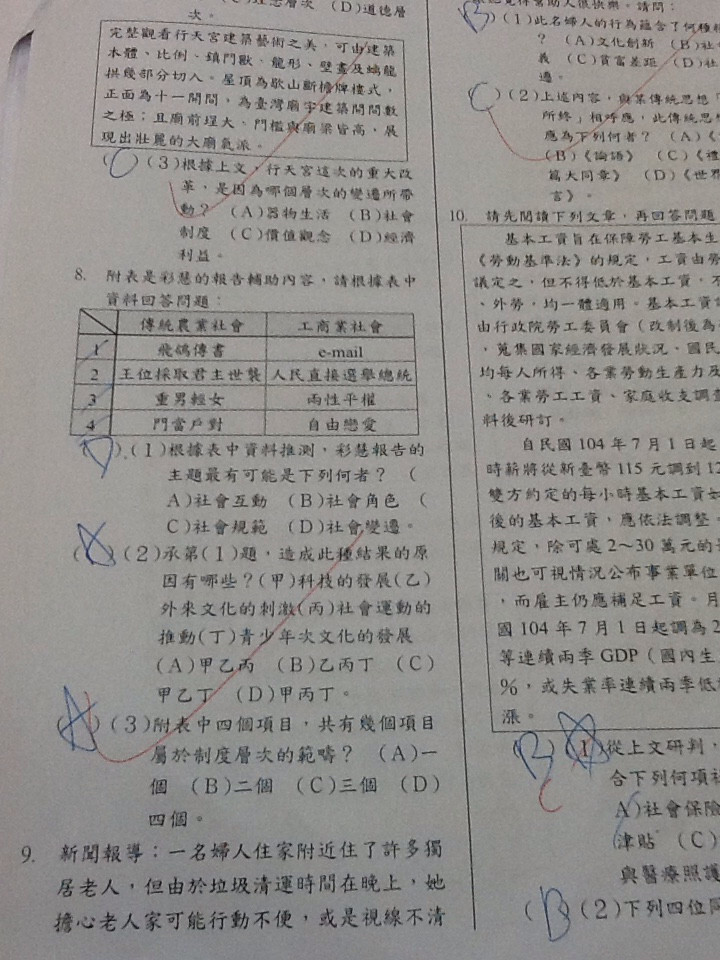 次。
(D)道德層
完整觀看行天宮建築藝術之美，可由建築
本體、比例、鎮門獸、龍形、壁畫及螭龍
拱幾部分切入。屋頂為歇山斷檐牌樓式，
正面為十一開間，為臺灣廟宇建築開間數
之極；且廟前埕大、門檻與廟梁皆高，展
現出壯麗的大廟氣派。
(C)(3)根據上文，行天宮這次的重大改
革，是因為哪個層次的變遷所帶
動？ (A)器物生活 (B)社會
制度 (C)價值觀念 (D)經濟
利益。
8. 附表是彩慧的報告輔助內容，請根據表中
資料回答問題：
傳統農業社會 工商業社會
1 飛鴿傳書 e-mail
2 王位採取君主世襲 人民直接選舉總統
3 重男輕女 兩性平權
4 門當戶對 自由戀愛
(D)(1)根據表中資料推測，彩慧報告的
主題最有可能是下列何者？ (
A)社會互動 (B)社會角色 (
C)社會規範 (D)社會變遷。
(A)(2)承第(1)題，造成此種結果的原
因有哪些？(甲)科技的發展(乙)
外來文化的刺激(丙)社會運動的
推動(丁)青少年次文化的發展
(A)甲乙丙 (B)乙丙丁 (C)
甲乙丁 (D)甲丙丁。
(A)(3)附表中四個項目，共有幾個項目
屬於制度層次的範疇？ (A)一
個 (B)二個 (C)三個 (D)
四個。
9. 新聞報導：一名婦人住家附近住了許多獨
居老人，但由於垃圾清運時間在晚上，她
擔心老人家可能行動不便，或是視線不清
幫助人很快樂。請問：
(B)(1)此名婦人的行為蘊含了何種
？ (A)文化創新 (B)社
義 (C)貧富差距 (D)社
遷。
(C)(2)上述內容，與某傳統思想「
所終」相呼應，此傳統思想
應為下列何者？ (A)《
(B)《論語》 (C)《禮
篇大同章》 (D)《世界
言》。
10. 請先閱讀下列文章，再回答問題
基本工資旨在保障勞工基本生
《勞動基準法》的規定，工資由勞
議定之，但不得低於基本工資，不
、外勞，均一體適用。基本工資
由行政院勞工委員會（改制後為
，蒐集國家經濟發展狀況、國民
均每人所得、各業勞動生產力及
、各業勞工工資、家庭收支調查
料後研訂。
自民國 104 年 7 月 1 日起
時薪將從新臺幣 115 元調到 12
雙方約定的每小時基本工資如
後的基本工資，應依法調整，
規定，除可處 2～30 萬元的
關也可視情況公布事業單位
，而雇主仍應補足工資。月
國 104 年 7 月 1 日起調為 2
等連續兩季 GDP（國內生
%，或失業率連續兩季低
漲。
(B)(1)從上文研判，
合下列何項社
A)社會保險
津貼 (C)
與醫療照護
(B)(2)下列四位同